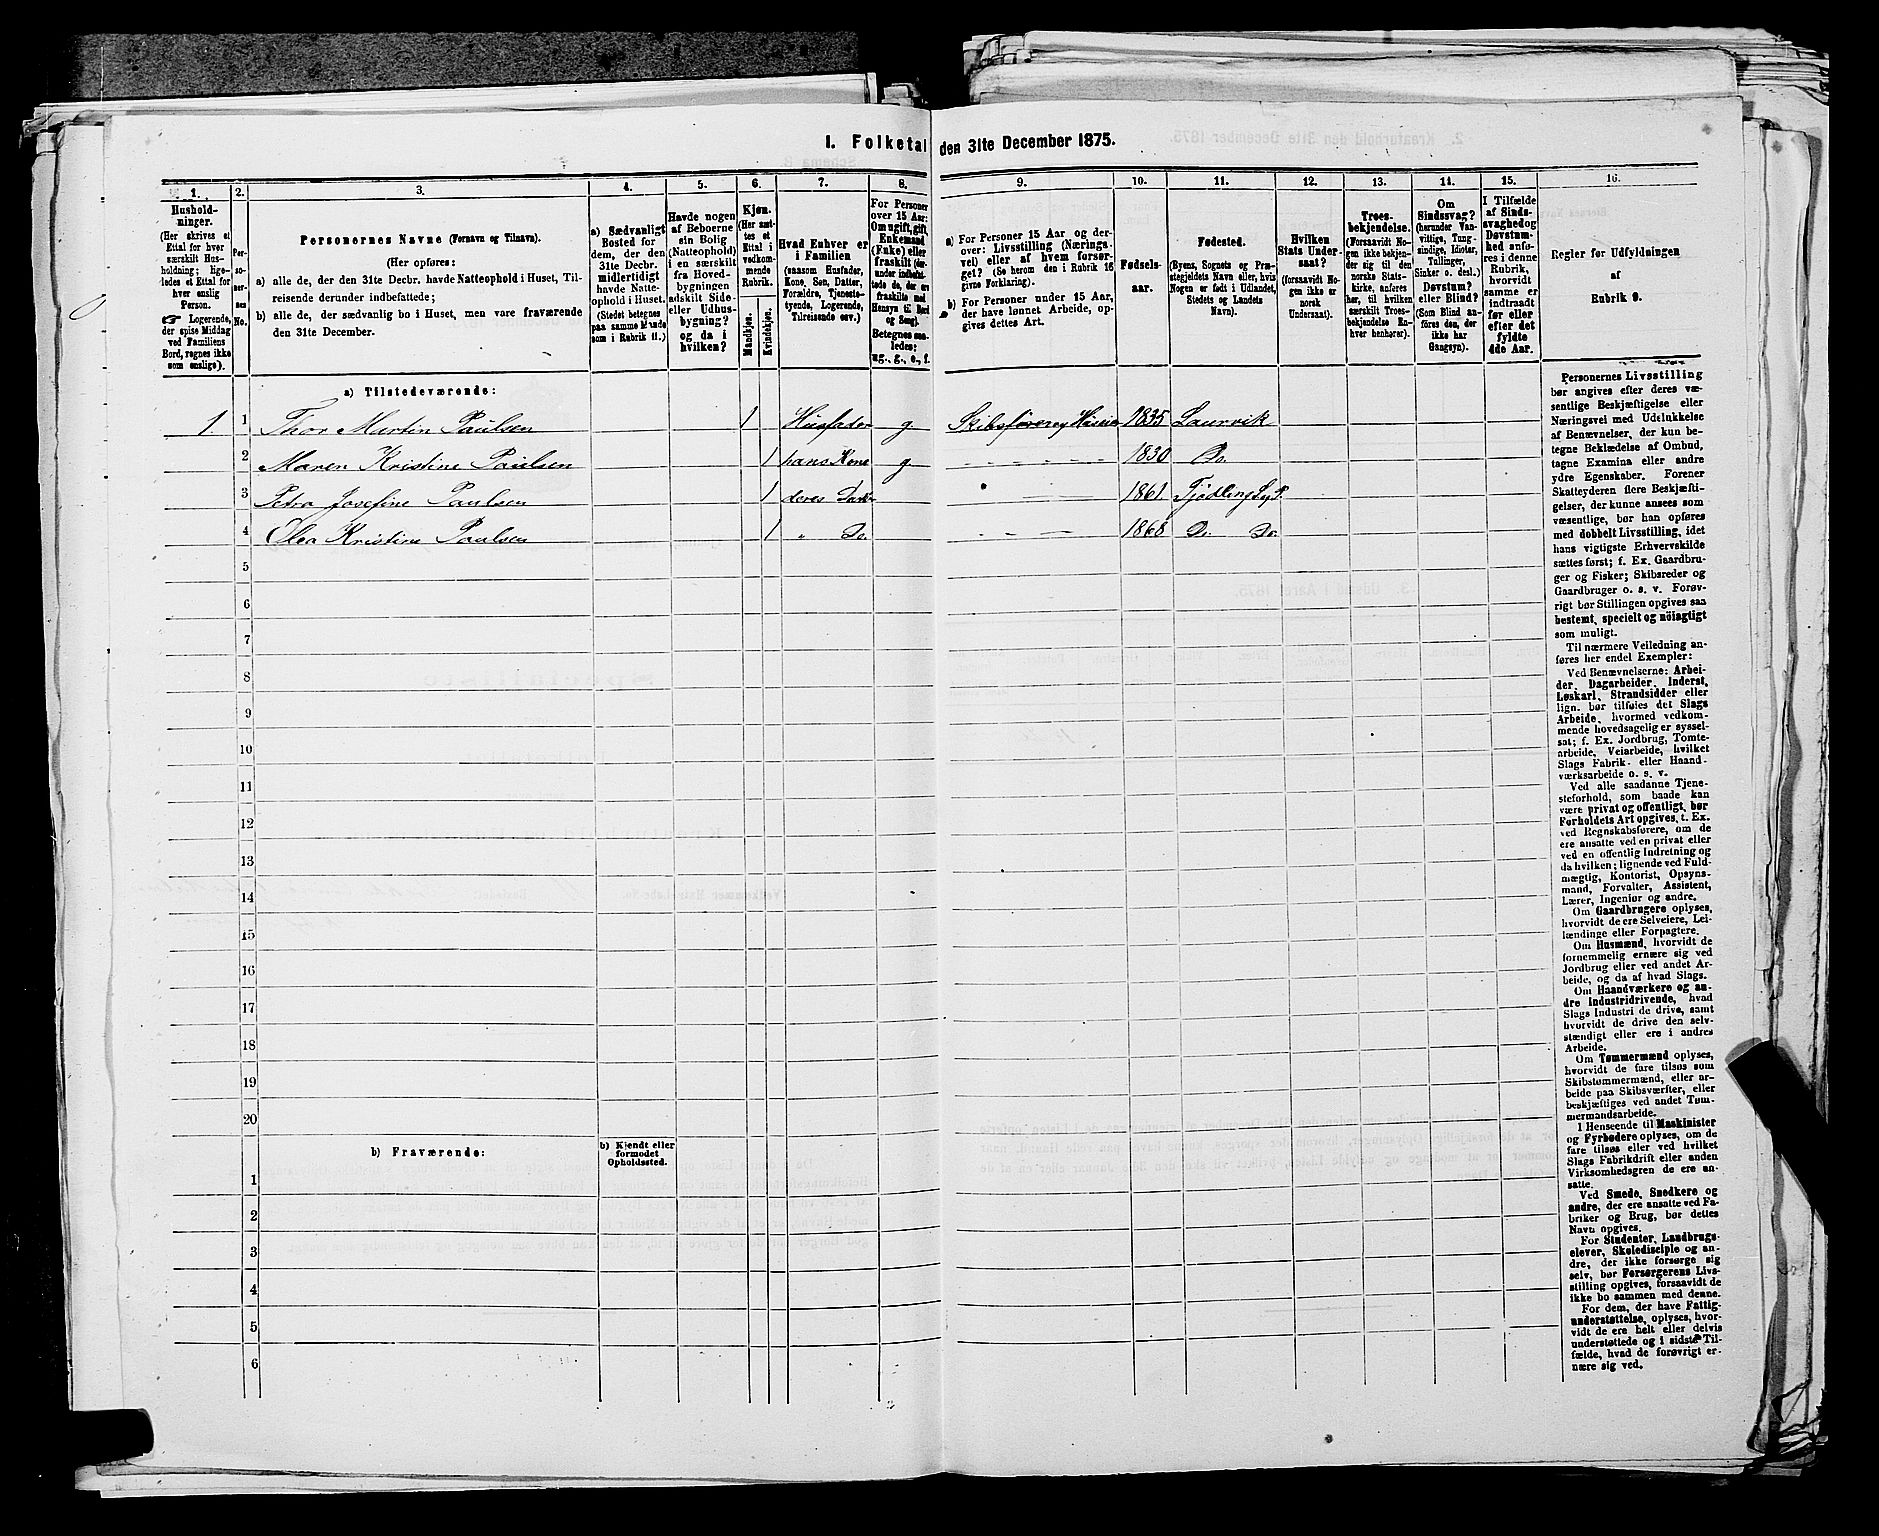 1. Folketal den 31te December 1875.
1. 2. 3. 4. 5. 6. 7. 8. 9. 10. 11. 12. 13. 14. 15. 16.
Hushold-
ninger.
(Her skrives et
Ettal for hver
særskilt Hus-
holdning; lige-
ledes et Ettal for
hver enslig
Person.
☞ Logerende,
der spise Middag
ved Familiens
Bord, regnes ikke
som enslige).
Per-
so-
ner-
nes
No.
Personernes Navne (Fornavn og Tilnavn).
(Her opføres:
a) alle de, der den 31te Decbr. havde Natteophold i Huset, Til-
reisende derunder indbefattede;
b) alle de, der sædvanlig bo i Huset, men vare fraværende
den 31te December.
a) Sædvanligt
Bosted for
dem, der den
31te Decbr.
midlertidigt
havde Natte-
ophold i Huset.
(Stedet betegnes
paa samme Maade
som i Rubrik 11.)
Havde nogen
af Beboerne
sin Bolig
(Natteophold)
i en særskilt
fra Hoved-
bygningen
adskilt Side-
eller Udhus-
bygning?
og da i
hvilken?
Kjøn.
(Her sæt-
tes et
Ettal i
vedkom-
mende
Rubrik.
Mandkjøn.
Kvindekjøn.
Hvad Enhver er
i Familien
(saasom Husfader,
Kone, Søn, Datter,
Forældre, Tjeneste-
tyende, Logerende,
Tilreisende osv.)
For Personer
over 15 Aar:
Om ugift, gift,
Enkemand
(Enke) eller
fraskilt
Betegnes saa-
ledes:
ug., g., e., f.
a) For Personer 15 Aar og der-
over: Livsstilling (Nærings-
vei) eller af hvem forsør-
get? (Se herom den i Rubrik 16
givne Forklaring).
b) For Personer under 15 Aar,
der have lønnet Arbeide, op-
gives dettes Art.
Fødsels-
aar.
Fødested.
(Byens, Sognets og Præ-
stegjeldets Navn eller, hvis
Nogen er født i Udlandet,
Stedets og Landets
Navn).
Hvilken
Stats Under-
saat?
(forsaavidt No-
gen ikke er
norsk
Undersaat).
Troes-
bekjendelse.
(Forsaavidt No-
gen ikke bekjen-
der sig til den
norske Stats-
kirke, anføres
her, til hvilken
særskilt Troes-
bekjendelse En-
hver henhører).
Om
Sindssvag?
(herunder Van-
vittige, Tung-
sindige, Idioter,
Tullinger,
Sinker o. desl.)
Døvstum?
eller Blind?
(Som Blind an-
føres den, der
ikke har
Gangsyn).
I Tilfælde
af Sinds-
svaghed og
Døvstum-
hed anfø-
res i denne
Rubrik,
hvorvidt
samme er
indtraadt
før eller
efter det
fyldte
4de Aar.
Regler for Udfyldningen
af
Rubrik 9.
a) Tilstedeværende:
1. 1 Thor Martin Paulsen 1 Husfader g Skibsfører 1835 Laurvik
2 Maren Kristine Paulsen 1 hans Kone g 1830 Do.
3 Petra Josefine Paulsen 1 deres 1861
4 Olea Kristine Paulsen 1 " Do. 1868 Do. Do.
5
6
7
8
9
10
11
12
13
14
15
16
17
18
19
20
b) Fraværende:
b) Kjendt eller
formodet
Opholdssted.
1
2
3
4
5
6
Personernes Livsstilling
bør angives efter deres væ-
sentlige Beskjæftigelse eller
Næringsvei med Udelukkelse
af Benævnelser, der kun be-
tegne Beklædelse af Ombud,
tagne Examina eller andre
ydre Egenskaber. Forener
Skatteyderen flere Beskjæfti-
gelser, der kunne ansees som
væsentlige, bør han opføres
med dobbelt Livsstilling, idet
hans vigtigste Erhvervskilde
sættes først; f. Ex. Gaardbru-
ger og Fisker; Skibsreder og
Gaardbruger o. s. v. Forøv-
rigt bør Stillingen opgives saa
bestemt, specielt og nöiagtigt
som muligt.
Til nærmere Veiledning an-
føres her endel Exempler:
Ved Benævnelserne: Arbei-
der, Dagarbeider, Inderst,
Løskarl, Strandsidder eller
lign. bør tilføies det Slags
Arbeide, hvormed vedkom-
mende hovedsagelig er syssel-
sat; f. Ex. Jordbrug, Tomte-
arbeide, Veiarbeide, hvilket
Slags Fabrik- eller Haand-
værksarbeide o. s. v.
Ved alle saadanne Tjene-
steforhold, som baade kan
være privat og offentligt, bør
Forholdets Art opgives, t. Ex.
ved Regnskabsførere, om de
ere ansatte ved en privat eller
ved en offentlig Indretning og
da hvilken; lignende ved Fuld-
mægtig, Kontorist, Opsyns-
mand, Forvalter, Assistent,
Lærer, Ingeniør og andre.
Om Gaardbrugere oplyses,
hvorvidt de ere Selveiere, Lei-
lændinge eller Forpagtere.
Om Husmænd, hvorvidt de
fornemmelig ernære sig ved
Jordbrug eller ved andet Ar-
beide, og da af hvad Slags.
Om Haandværkere og an-
dre Industridrivende, hvad
Slags Industri de drive, samt
hvorvidt de drive den selv-
stændigt eller ere i andres
Arbeide.
Om Tømmermænd oplyses,
hvorvidt de fare tilsøs som
Skibstømmermænd, eller ar-
beide paa Skibsværfter, eller
beskjæftiges ved andet Tøm-
mermandsarbeide.
I Henseende til Maskinister
og Fyrbødere oplyses, om de
fare tilsøs eller ved hvilket
Slags Fabrikdrift eller anden
Virksomhedsgren de ere an-
satte.
Ved Smede, Snedkere og
andre, der ere ansatte ved Fa-
briker og Brug, bør dettes
Navn opgives.
For Studenter, Landbrugs-
elever, Skoledisciple og an-
dre, der ikke forsørge sig
selv, bør Forsørgerens Livs-
stilling opgives, forsaavidt de
ikke bo sammen med denne.
For dem, der have Fattig-
understøttelse, oplyses, hvor-
vidt de ere helt eller delvis
understøttede og i sidste Til-
fælde, hvad de forøvrigt er-
nære sig ved.